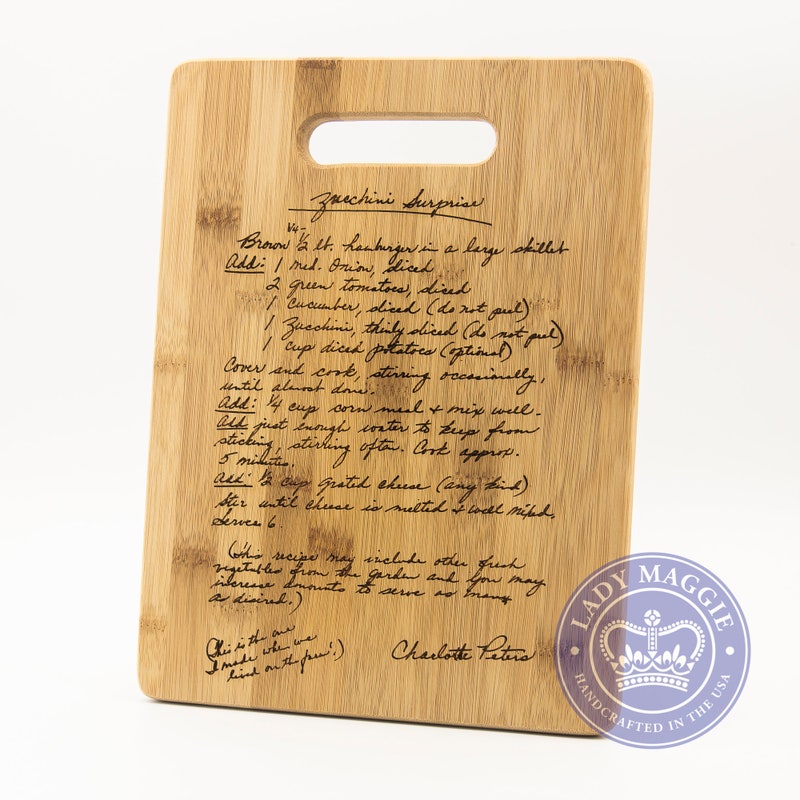 Zucchini Surprise
1/4-
Brown 1/2 lb. hamburger in a large skillet
Add: 1 med. Onion, diced
2 green tomatoes, diced
1 cucumber, diced (do not peel)
1 Zucchini, thinly diced (do not peel)
1 cup diced potatoes (optional)
Cover and cook, stirring occasionally,
until almost done.
Add: 1/4 cup corn meal & mix well.
Add just enough water to keep from
sticking, stirring often. Cook approx.
5 minutes.
Add: 1/2 cup grated cheese (any kind)
Stir until cheese is melted & well mixed.
Serves 6.
(This recipe may include other fresh
vegetables from the garden and you may
increase amounts to serve as many
as desired.)
(This is the one
I made when we
lived on the farm!)
Charlotte Peters
LADY MAGGIE
HANDCRAFTED IN THE USA